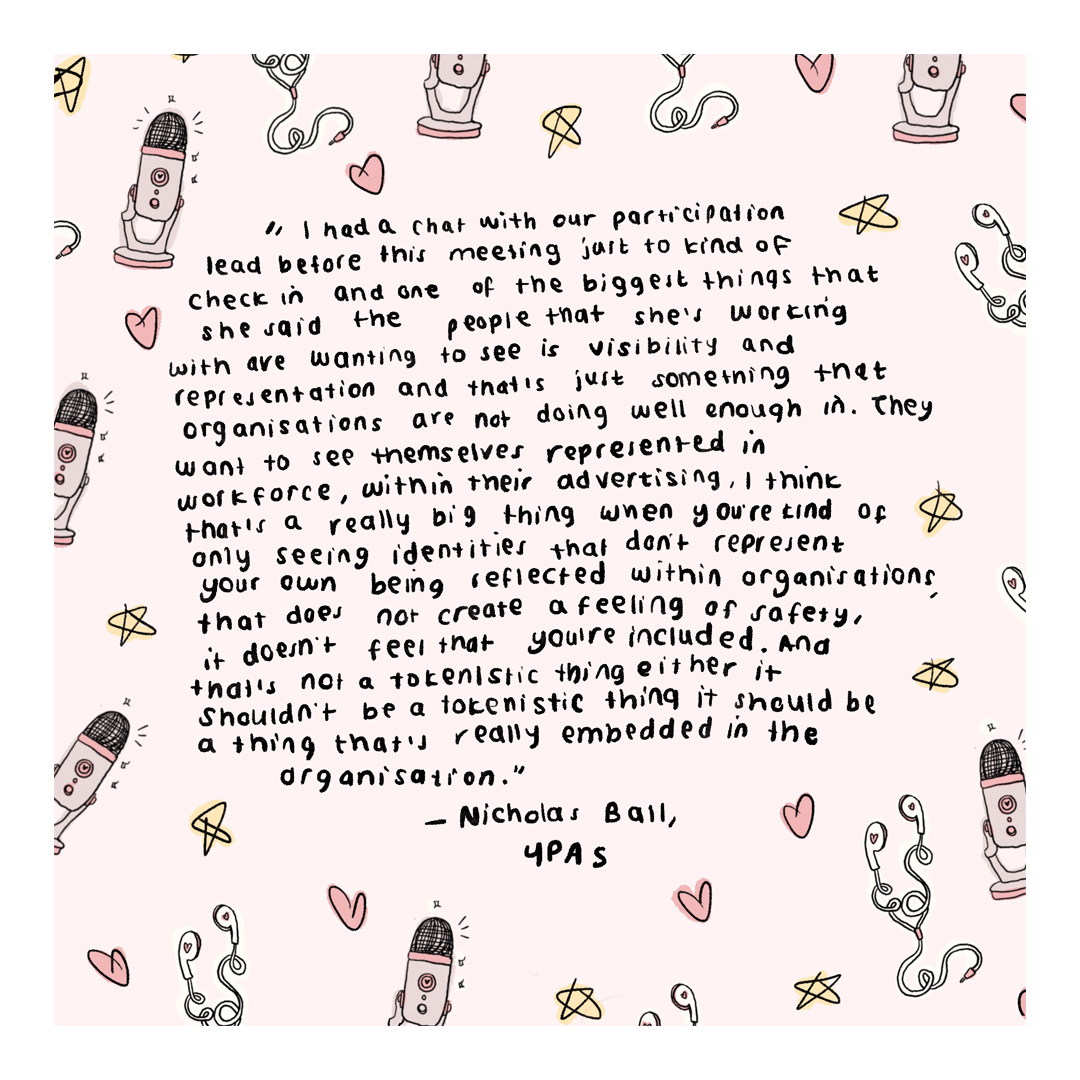 " I had a chat with our participation
lead before this meeting just to kind of
check in and one of the biggest things that
she said the people that she's working
with are wanting to see is visibility and
representation and that's just something that
organisations are not doing well enough in. They
want to see themselves represented in
workforce, within their advertising, I think
that's a really big thing when you're kind of
only seeing identities that don't represent
your own being reflected within organisations,
that does not create a feeling of safety,
it doesn't feel that you're included. And
that's not a tokenistic thing either it
shouldn't be a tokenistic thing it should be
a thing that's really embedded in the
organisation."
– Nicholas Ball,
YPAS